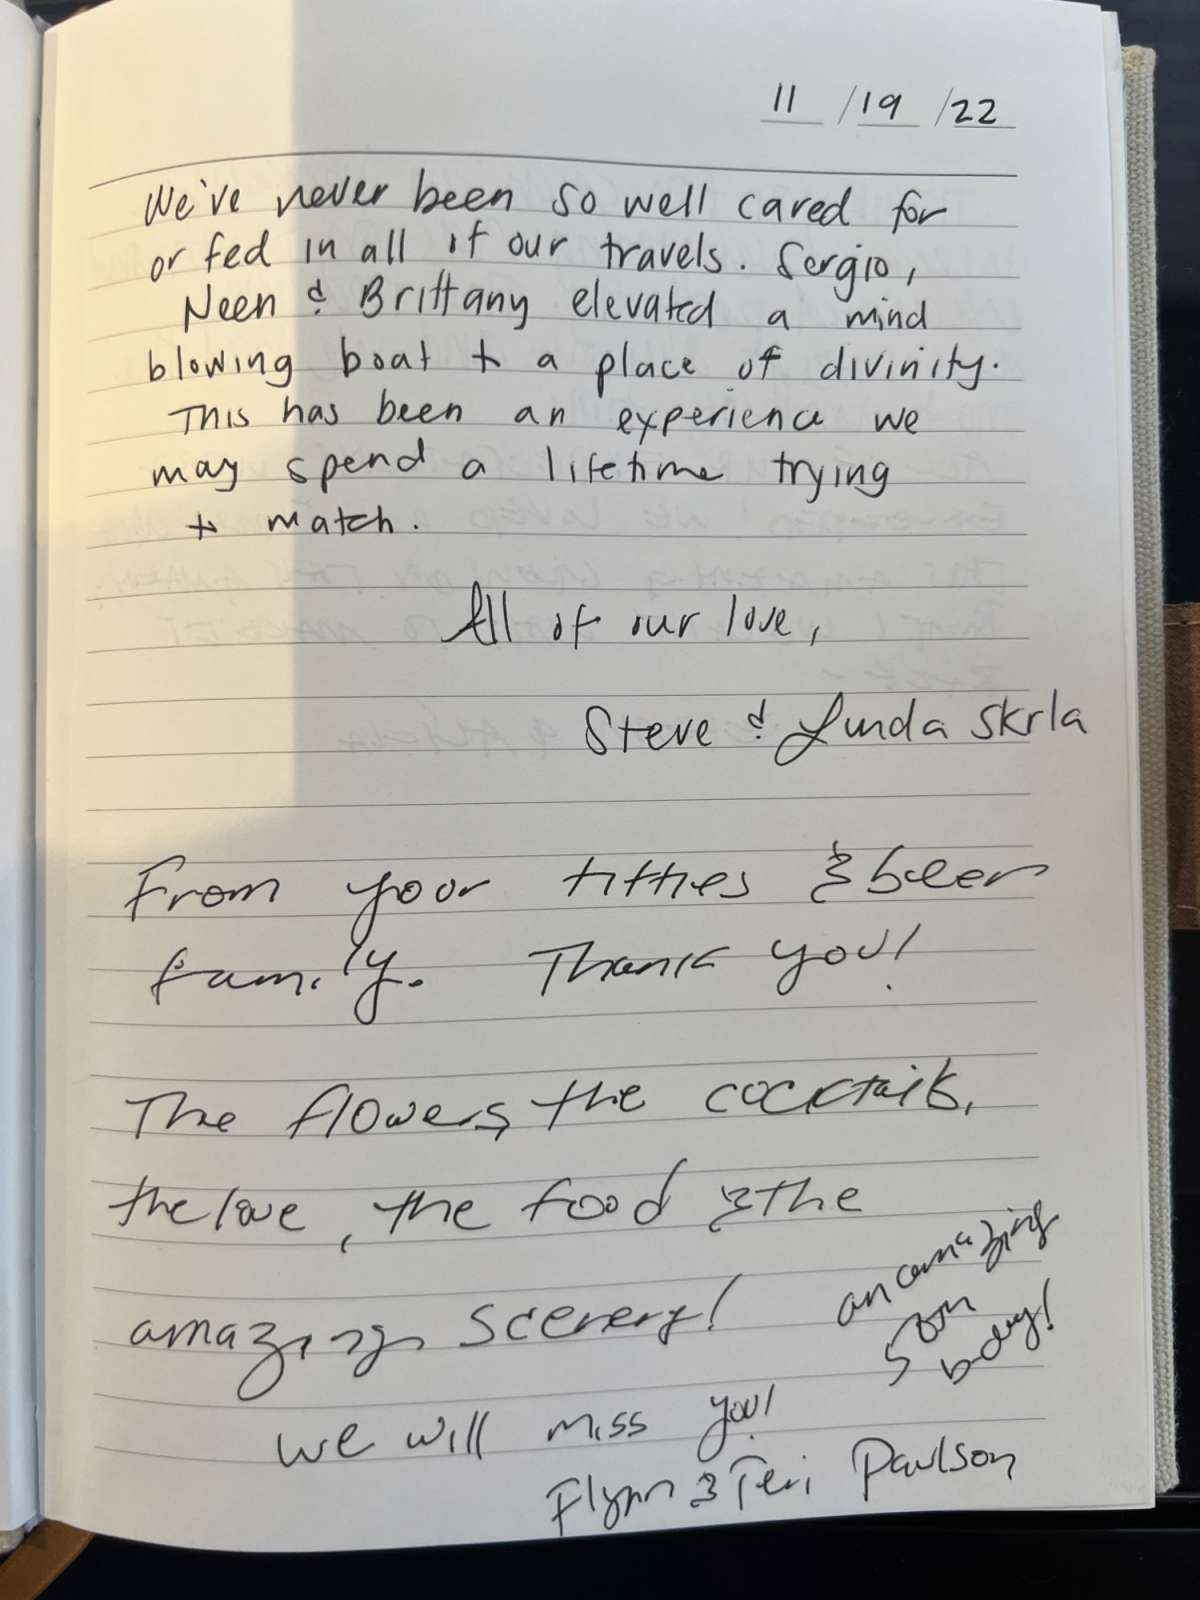 11 /19 /22
We've never been so well cared for
or fed in all of our travels. Sergio,
Neen & Brittany elevated a mind
blowing boat to a place of divinity.
This has been an experience we
may spend a lifetime trying
to match.
All of our love,
Steve & Linda Skrla
From your titties & beer
family. Thank you!
The flowers, the cocktails,
the love, the food & the
amazing scenery!
an amazing
50th
bday!
We will miss you!
Flynn & Teri Paulson